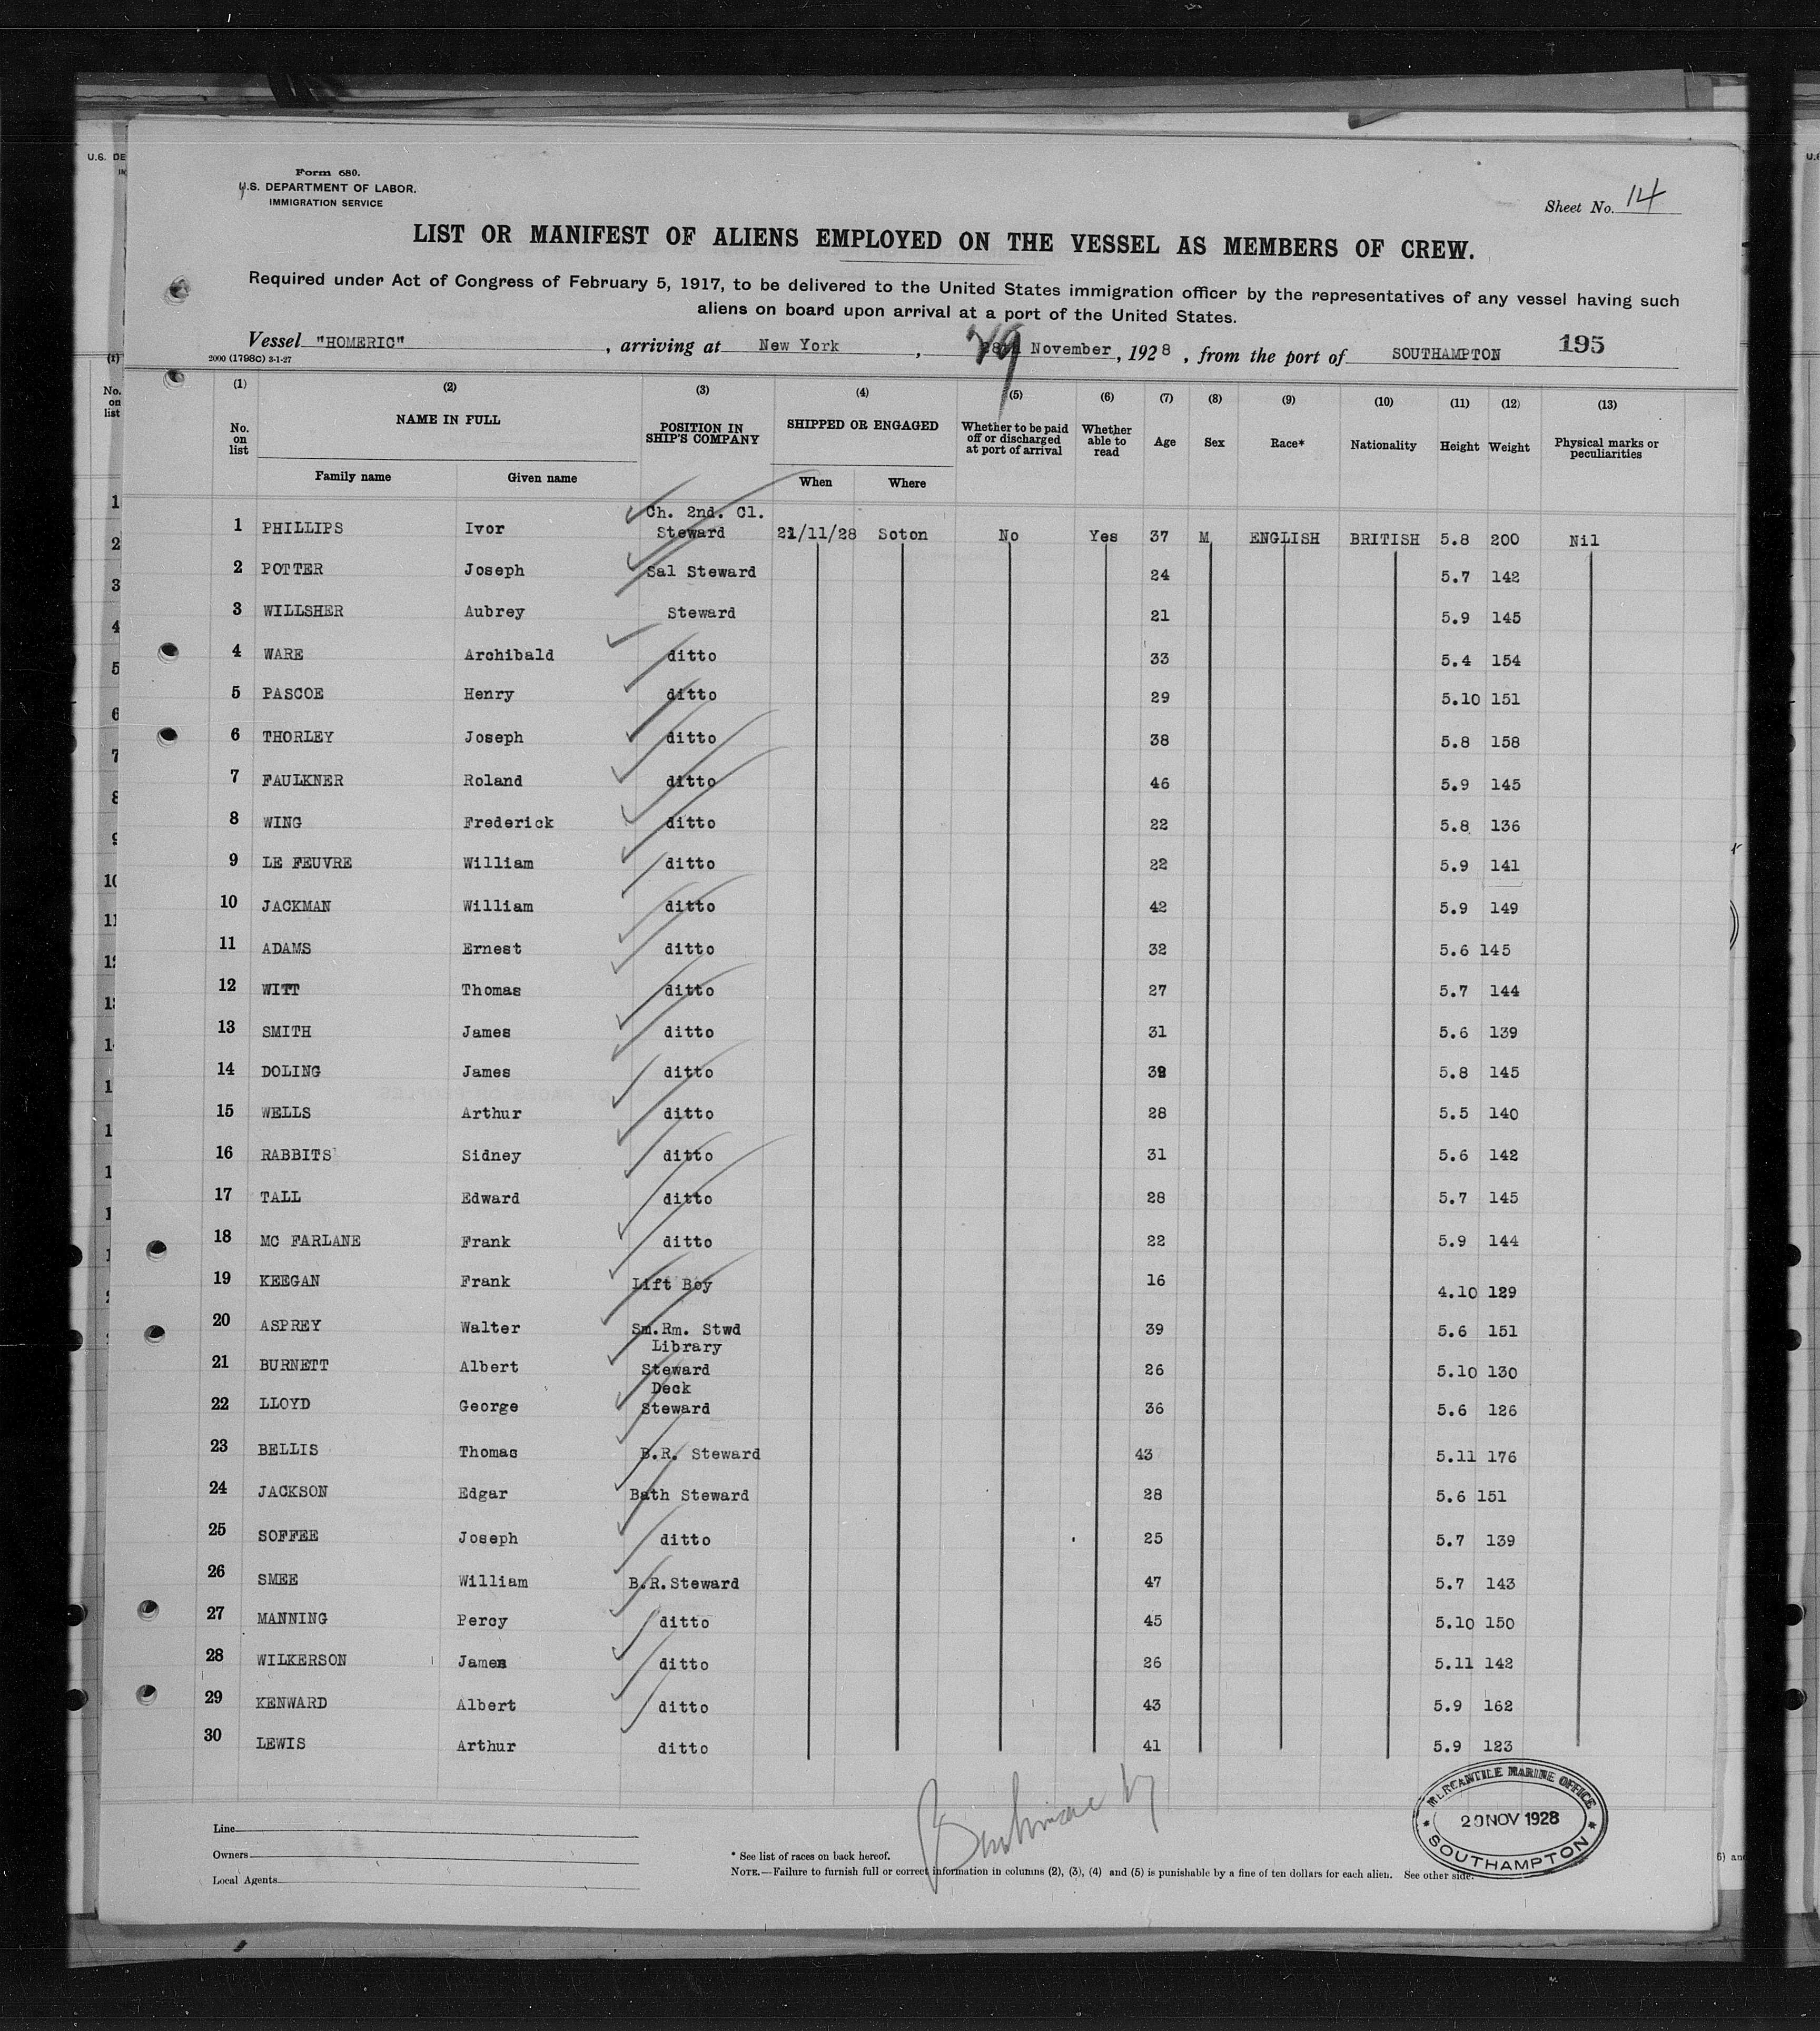 Form 680.
U.S. DEPARTMENT OF LABOR.
IMMIGRATION SERVICE
Sheet No. 14
LIST OR MANIFEST OF ALIENS EMPLOYED ON THE VESSEL AS MEMBERS OF CREW.
Required under Act of Congress of February 5, 1917, to be delivered to the United States immigration officer by the representatives of any vessel having such
aliens on board upon arrival at a port of the United States.
Vessel "HOMERIC", arriving at New York, 29 November, 1928, from the port of SOUTHAMPTON 195
2000 (1798C) 3-1-27
(1) (2) (3) (4) (5) (6) (7) (8) (9) (10) (11) (12) (13)
No. on list NAME IN FULL POSITION IN SHIP'S COMPANY SHIPPED OR ENGAGED Whether to be paid off or discharged at port of arrival Whether able to read Age Sex Race* Nationality Height Weight Physical marks or peculiarities
Family name Given name When Where
Ch. 2nd. Cl.
1 PHILLIPS Ivor Steward 21/11/28 Soton No Yes 37 M ENGLISH BRITISH 5.8 200 Nil
2 POTTER Joseph Sal Steward 24 5.7 142
3 WILLSHER Aubrey Steward 21 5.9 145
4 WARE Archibald ditto 33 5.4 154
5 PASCOE Henry ditto 29 5.10 151
6 THORLEY Joseph ditto 38 5.8 158
7 FAULKNER Roland ditto 46 5.9 145
8 WING Frederick ditto 22 5.8 136
9 LE FEUVRE William ditto 22 5.9 141
10 JACKMAN William ditto 42 5.9 149
11 ADAMS Ernest ditto 32 5.6 145
12 WITT Thomas ditto 27 5.7 144
13 SMITH James ditto 31 5.6 139
14 DOLING James ditto 5.8 145
15 WELLS Arthur ditto 28 5.5 140
16 RABBITS Sidney ditto 31 5.6 142
17 TALL Edward ditto 28 5.7 145
18 MC FARLANE Frank ditto 22 5.9 144
19 KEEGAN Frank Lift Boy 16 4.10 129
20 ASPREY Walter Sm.Rm. Stwd 39 5.6 151
Library
21 BURNETT Albert Steward 26 5.10 130
Deck
22 LLOYD George Steward 36 5.6 126
23 BELLIS Thomas B.R. Steward 43 5.11 176
24 JACKSON Edgar Bath Steward 28 5.6 151
25 SOFFEE Joseph ditto 25 5.7 139
26 SMEE William B.R.Steward 47 5.7 143
27 MANNING Percy ditto 45 5.10 150
28 WILKERSON James ditto 26 5.11 142
29 KENWARD Albert ditto 43 5.9 162
30 LEWIS Arthur ditto 41 5.9 123
Line
Owners
Local Agents
* See list of races on back hereof.
NOTE.—Failure to furnish full or correct information in columns (2), (3), (4) and (5) is punishable by a fine of ten dollars for each alien. See other side.
MERCANTILE MARINE OFFICE
20 NOV 1928
SOUTHAMPTON